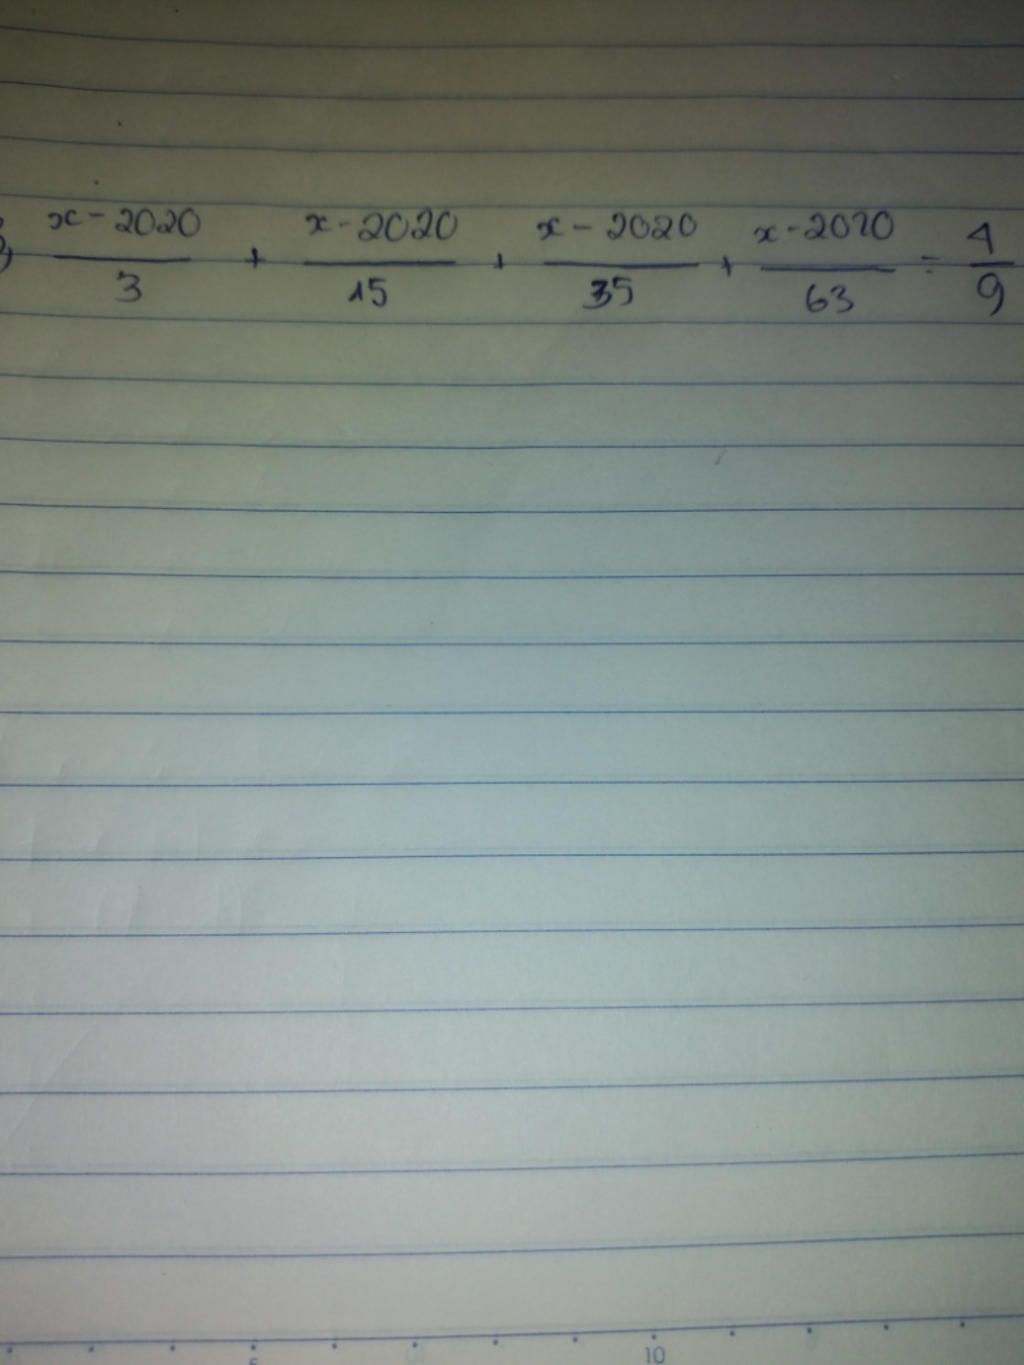 x - 2020 / 3 + x - 2020 / 15 + x - 2020 / 35 + x - 2020 / 63 = 4 / 9
5 10